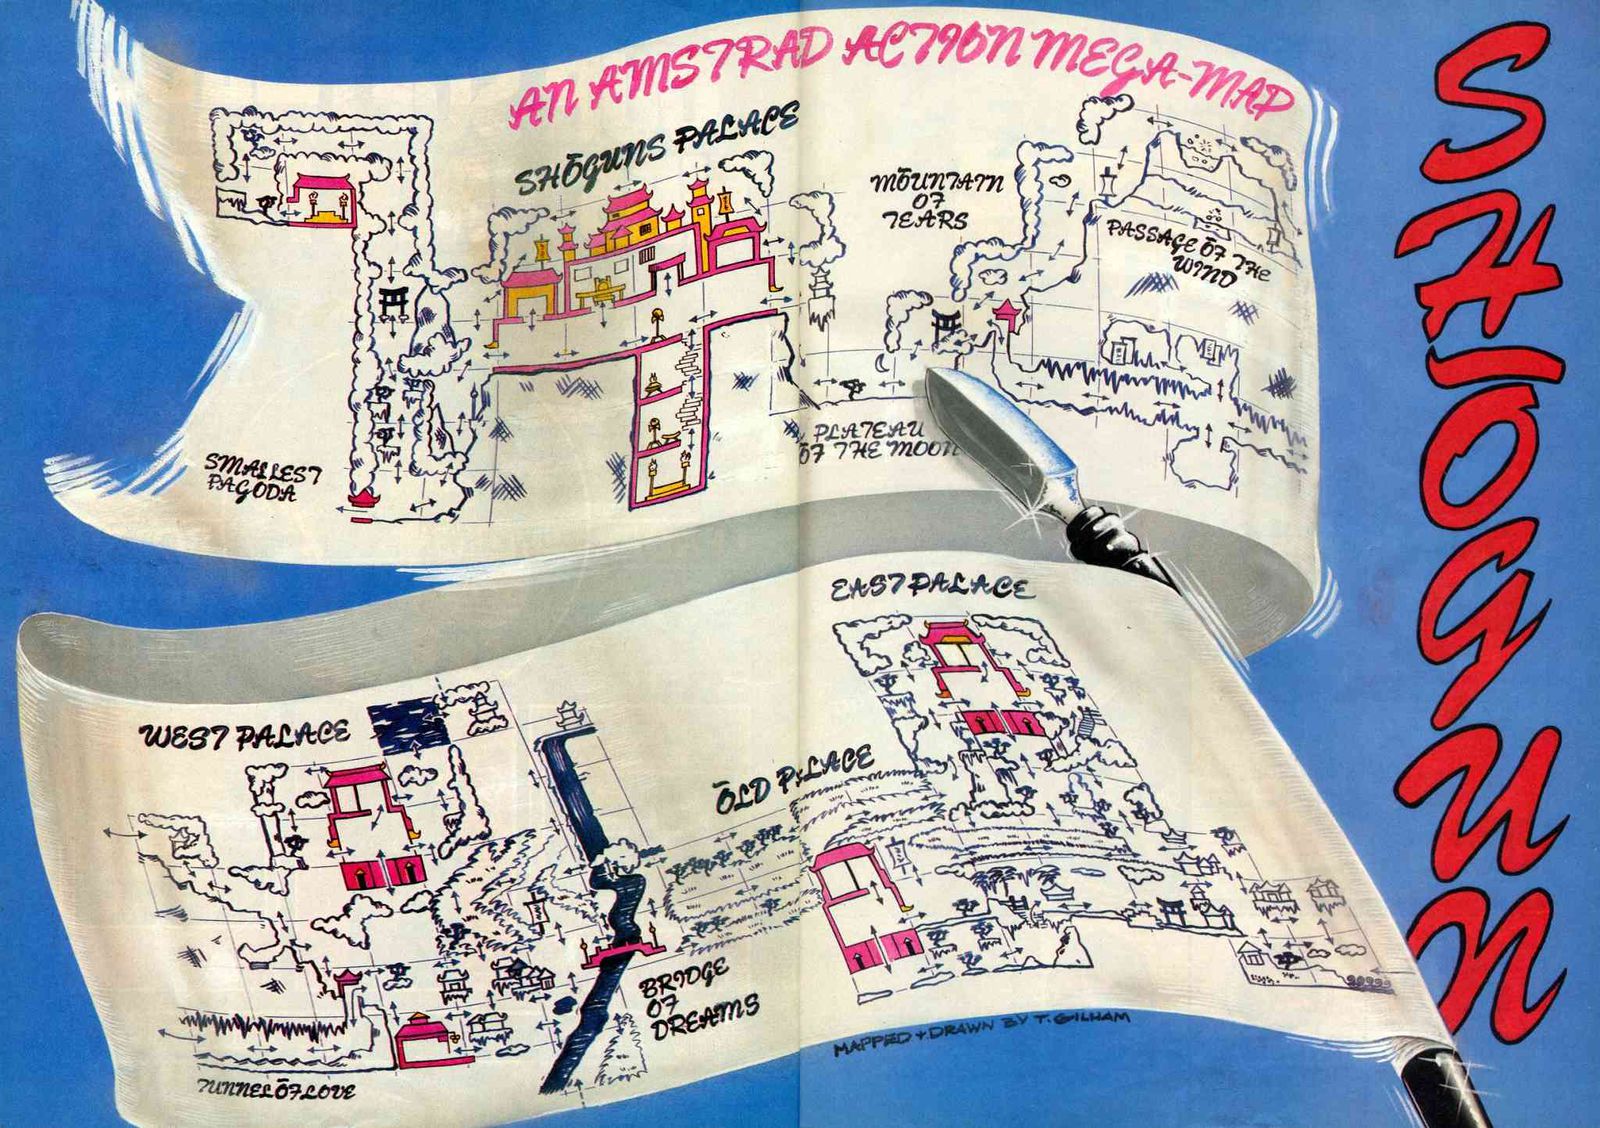 AN AMSTRAD ACTION MEGA-MAP
SHŌGUN
SHŌGUNS PALACE
MŌUNTAIN
OF
TEARS
PASSAGE ŌF THE
WIND
PLATEAU
ŌF THE MOON
SMALLEST
PAGODA
EAST PALACE
WEST PALACE
ŌLD PALACE
BRIDGE
OF
DREAMS
TUNNEL ŌF LOVE
MAPPED + DRAWN BY T. GILHAM